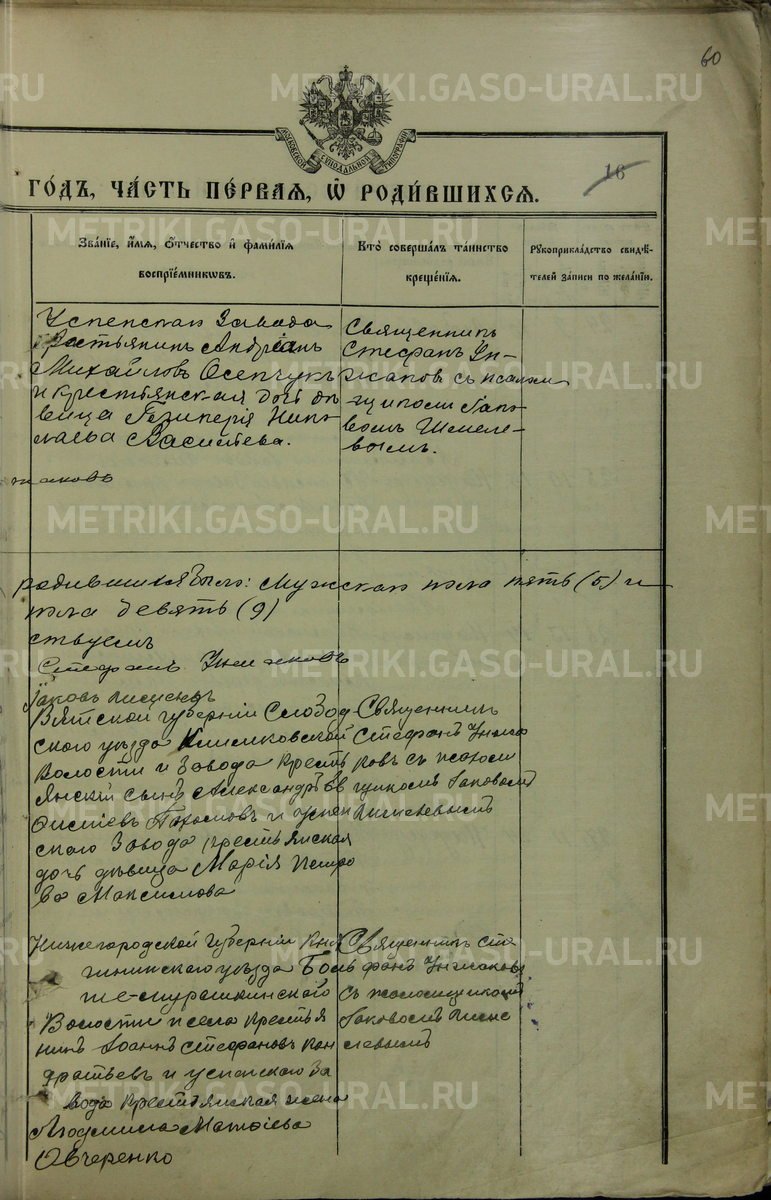 60
METRIKI.GASO-URAL.RU
МОСКОВСКОЙ СѴНОДАЛЬНОЙ ТИПОГРАФІИ
16
ГОДЪ, ЧАСТЬ ПЕРВАЯ, Ѿ РОДИВШИХСЯ.
Званіе, имя, отчество и фамилія воспріемниковъ.
Кто совершалъ таинство крещенія.
Рукоприкладство свидѣтелей записи по желанію.
Успенскаго Завода
крестьянинъ Андріанъ
Михайловъ
и крестьянская дочь дѣ-
вица Гликерія Нико-
лаева Васильева.
Священникъ
Стефанъ Ун-
жаковъ съ псалом-
щикомъ Іако-
вомъ Шмеле-
вымъ.
жаковъ
родившихся было: мужскаго пола пять (5) и
пола девять (9)
ствуемъ
Стефанъ Унжаковъ
Іаковъ
Вятской губерніи Слобод
скаго уѣзда Климковской
Волости и Завода Кресть
янскій сынъ Александръ Ев
Пахомовъ и Успен
скаго Завода крестьянская
дочь дѣвица Марія Петро
ва Максимова
Священникъ
Стефанъ Унжа
ковъ съ псаломъ
щикомъ Іаковомъ
Шмелевымъ
Нижегородской губерніи Кня
гининскаго уѣзда Боль
ше-мурашкинскаго
Волости и села крестья
нинъ Іоаннъ Стефановъ Кон
дратьевъ и успенскаго За
вода крестьянская жена
Людмила Матѳіева
Овчеренко
Священникъ Сте
фанъ Унжаковъ
съ псаломщикомъ
Іаковомъ Шме
левымъ